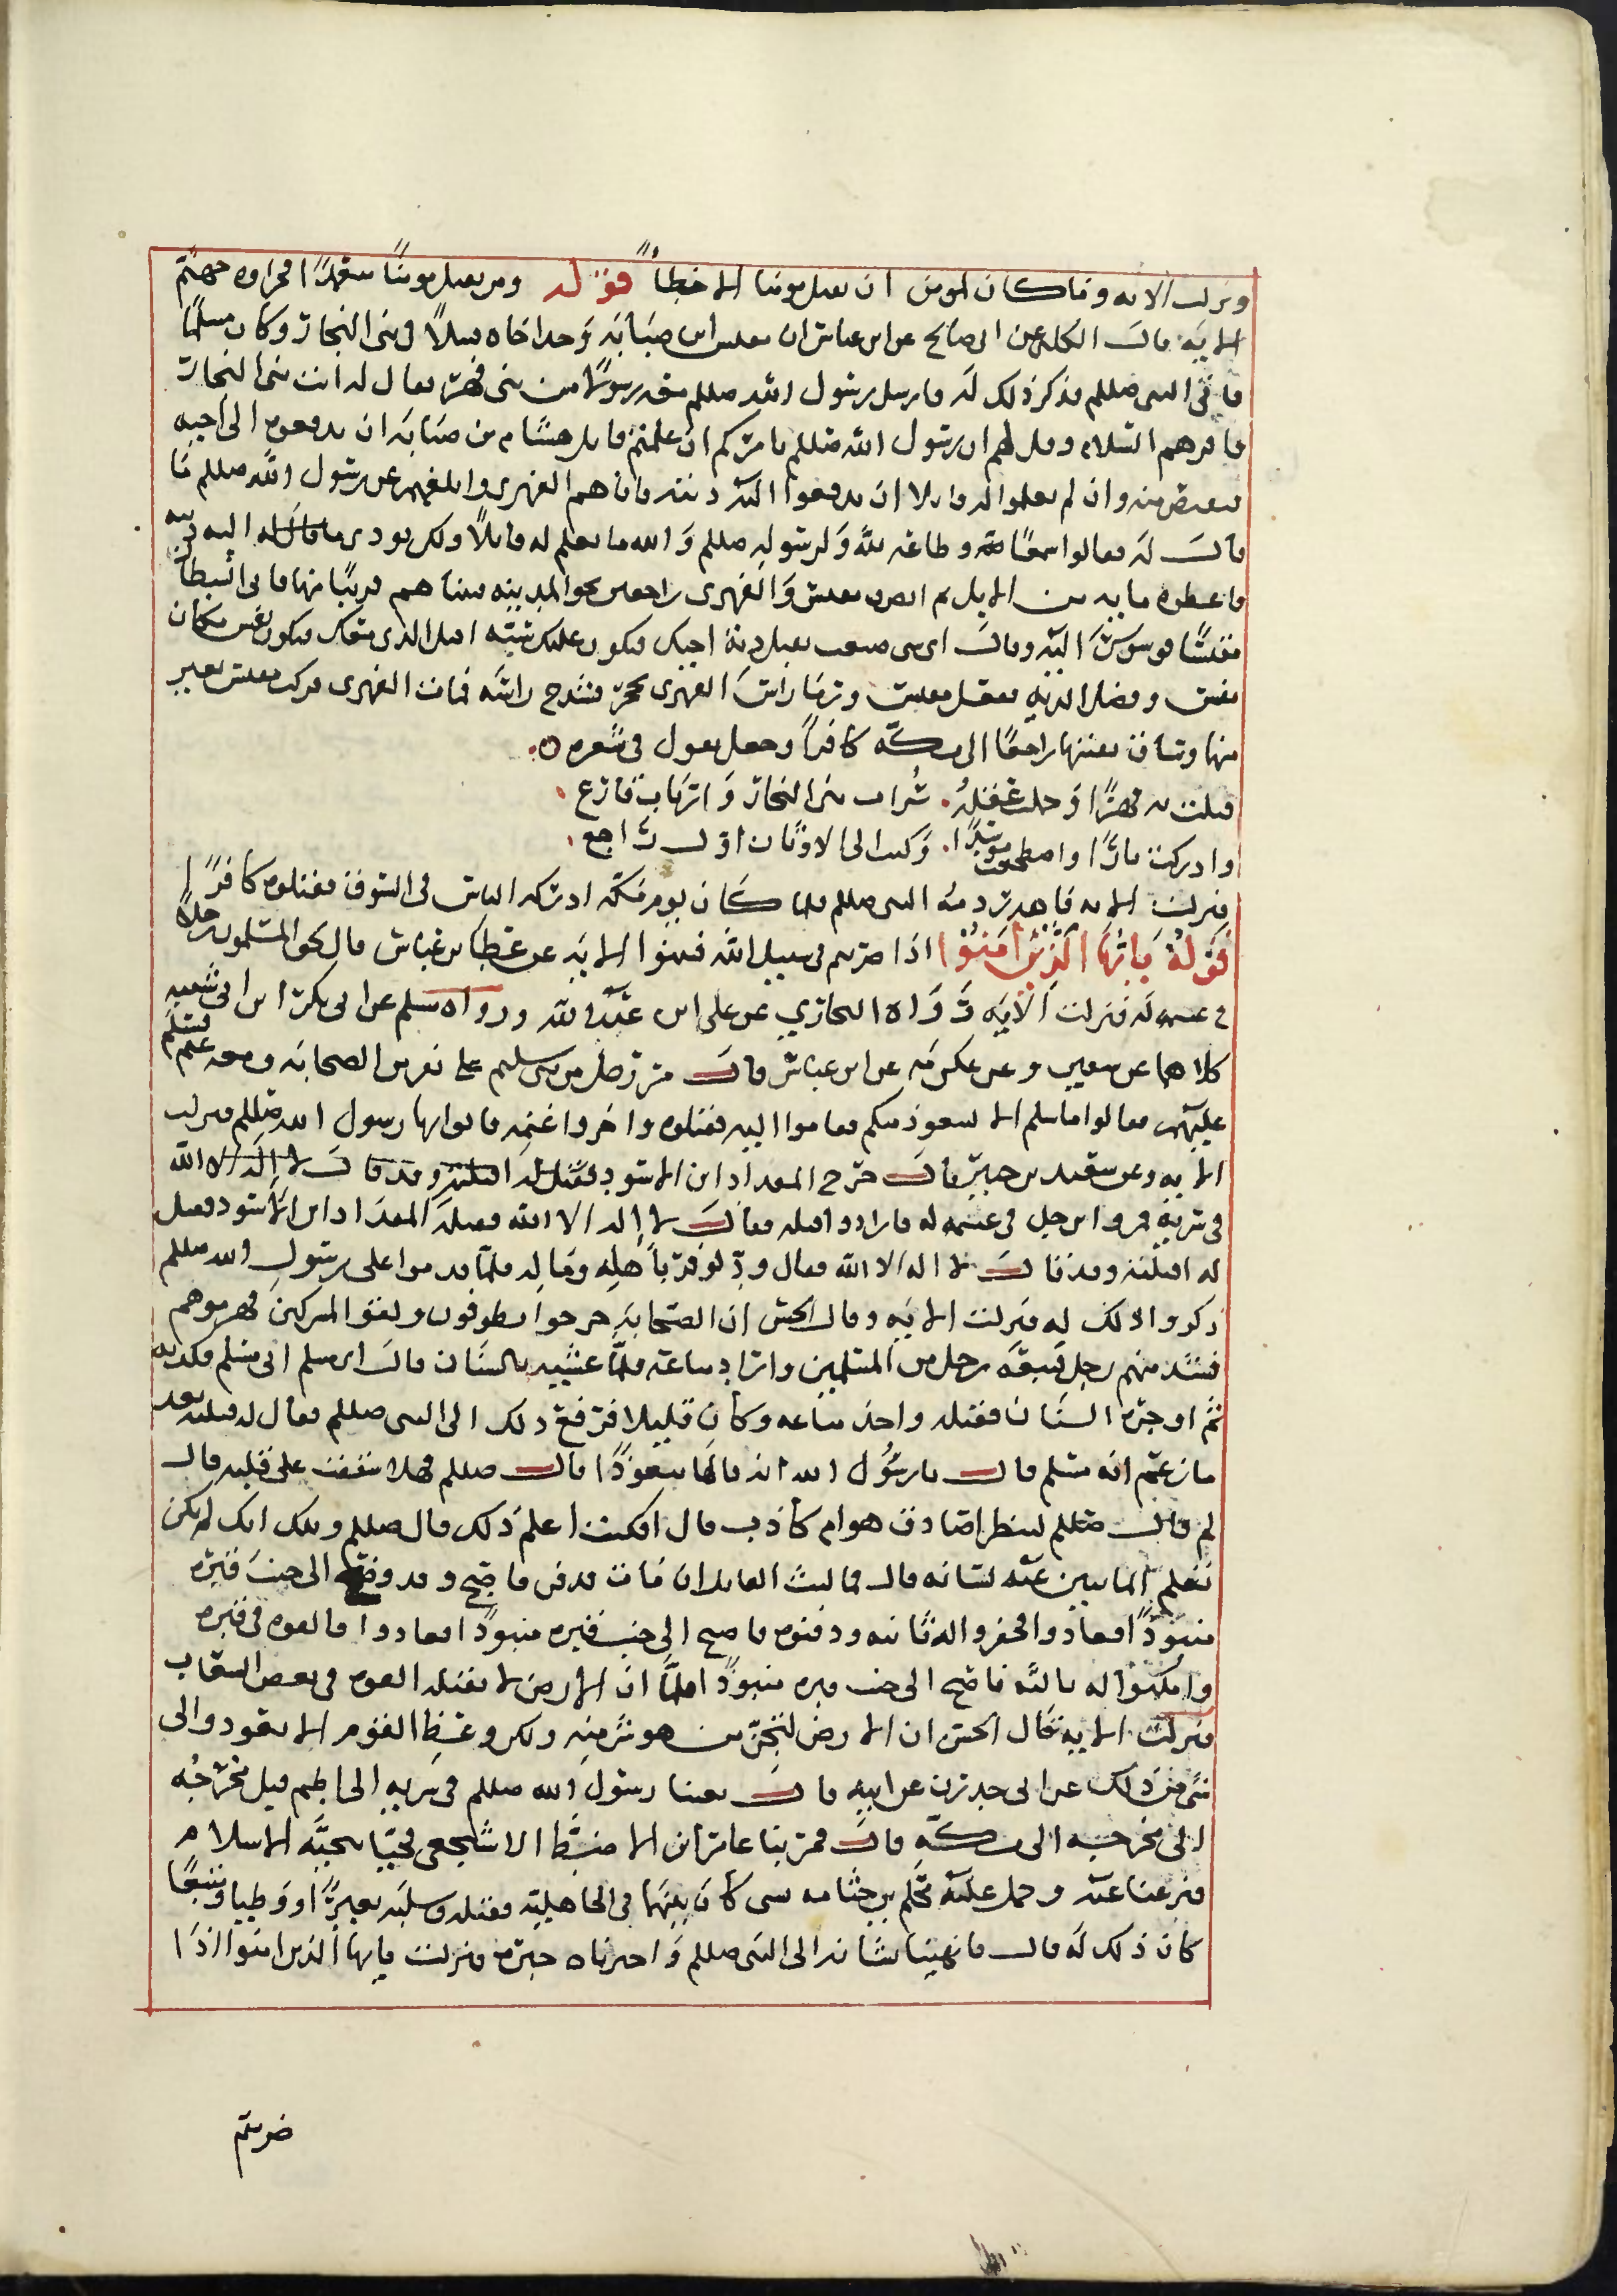 ونزلت الايه وما كان لمومن ان يعىل مومنا الا خطأً قوله ومن يقتل مومنًا متعمدًا فجزاوه جهنم
الايه قال الكلبى عن ابى صالح عن ابن عباس ان مقيس ابن صبابه وجد اخاه قتيلاً في بنى النجار وكان مسلمًا
فاتى النبى صللم فذكر ذلك له فارسل رسول الله صللم معه رسولا من بنى فهر فقال له ائت بنى النجار
فاقرهم السلام وقل لهم ان رسول الله صللم يامركم ان علمتم قاتل هشام بن صبابه ان تدفعوه الى اخيه
فيقتص منه وان لم تعلموا له قاتلا ان تدفعوا اليه ديته فاتاهم الفهرى وابلغهم عن رسول الله صللم ما
قال له فقالوا سمعًا وطاعه لله ولرسوله صللم والله ما نعلم له قاتلاً ولكن نودى اليه ديته
فاعطوه مايه من الابل ثم انصرف مقيس والفهرى راجعين نحو المدينه فبينا هم قريبًا منها فاتى الشيطان
مقيسًا فوسوس اليه وقال اى شى صنعت تقبل دية اخيك فتكون عليك سبّه اقتل الذى معك فتكون نفس مكان
نفس وفضل الديه فقتل مقيس ورما راس الفهرى بحجر فشدخ راسه فمات الفهرى فركب مقيس بعير
منها وساق بقيتها راجعًا الى مكّه كافراً وجعل يقول في شعره
قتلت به فهرًا وحملت عقله. سُراه بنى النجار وارباب فارع
وادركت ثارًا واضطجعت موسدًا. وكنت الى الاوثان اوّل راجع
فنزلت الايه فاهدر دمه النبى صللم فلما كان يوم مكّه ادركه الناس في السوق فقتلوه كافرًا
قوله يا ايها الذين امنوا اذا ضربتم في سبيل الله فتبينوا الايه عن عطا بن عباس قال لحق المسلمون رجلاً
في غنيمه له فنزلت الايه رواه البخاري عن على ابن عبد الله ورواه مسلم عن ابى بكر ابن ابى شيبه
كلاهما عن سفين وعن عكرمه عن ابن عباس قال مر رجل من بنى سليم على نفر من الصحابه ومعه غنم فسلّم
عليهم فقالوا ما سلم الا ليتعوذ منكم فقاموا اليه فقتلوه واخذوا غنمه فاتوا بها رسول الله صللم فنزلت
الايه وعن سعيد بن جبير قال خرج المقداد ابن الاسود
في سريه فمروا برجل في غنيمه له فارادوا قتله فقال لا اله الا الله فقتله المقداد ابن الاسود فقيل
له اقتلته وقد قال لا اله الا الله فقال ودّ لو فرّ باهله وماله فلمّا قدموا على رسول الله صللم
ذكروا ذلك له فنزلت الايه وقال الحسن ان الصحابه خرجوا يطوفون ولقوا المشركين فهزموهم
فشد منهم رجل فتبعه رجل من المسلمين واراد متاعه فلمّا غشيه بالسنان قال انى مسلم انى مسلم فكذبه
ثم اوجره السنان فقتله واخذ متاعه وكان قليلا فرفع ذلك الى النبى صللم فقال له قتلته بعد
ما زعم انه مسلم قال يا رسول الله انه قالها متعوذًا قال صللم فهلا شققت على قلبه قال
لم قال صللم لتنظر اصادق هو ام كاذب قال اوكنت اعلم ذلك قال صللم ويلك انك لم تكن
تعلم انما يبين عنه لسانه قال فما لبث القاتل ان مات فدفن فاصبح وقد وضع الى جنب قبره
منبوذًا فعادوا فحفروا له ثانيه ودفنوه فاصبح الى جنب قبره منبوذًا فعادوا فالقوه في قبره
وامكنوا له ثالثه فاصبح الى جنب قبره منبوذًا فلمّا ان الارض لا تقبله القوه في بعض الشعاب
فنزلت الايه قال الحسن ان الارض لتجن من هو شر منه ولكن وعظ القوم الا يعودوا الى
مثل ذلك عن ابى حدرد عن ابيه قال بعثنا رسول الله صللم في سريه الى اضم قبل مخرجه
الى مكّه قال فمر بنا عامر ابن الاضبط الاشجعى فحيّا بتحيّه الاسلام
فنزعنا عنه وحمل عليه محلم بن جثامه لشى كان بينهما في الجاهليه فقتله وسلبه بعيرًا ووطبا ومتيعًا
كان ذلك له قال فانهينا شانه الى النبى صللم واخبرناه خبره فنزلت يا ايها الذين امنوا اذا
ضربتم